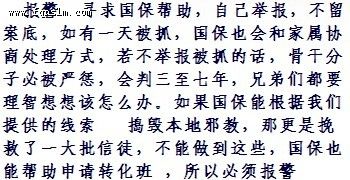 报警，寻求国保帮助，自己举报，不留
案底，如有一天被抓，国保也会和家属协
商处理方式，若不举报被抓的话，骨干分
子必被严惩，会判三至七年，兄弟们都要
理智想想该怎么办。如果国保能根据我们
提供的线索 捣毁本地邪教，那更是挽
救了一大批信徒，不能做到这些，国保也
能帮助申请转化班 ，所以必须报警